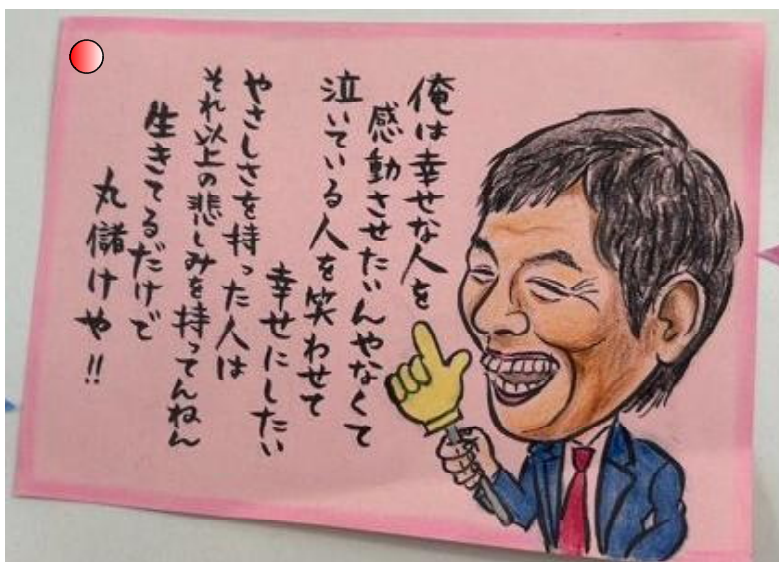 俺は幸せな人を
感動させたいんやなくて
泣いている人を笑わせて
幸せにしたい
やさしさを持った人は
それ以上の悲しみを持ってんねん
生きてるだけで
丸儲けや!!